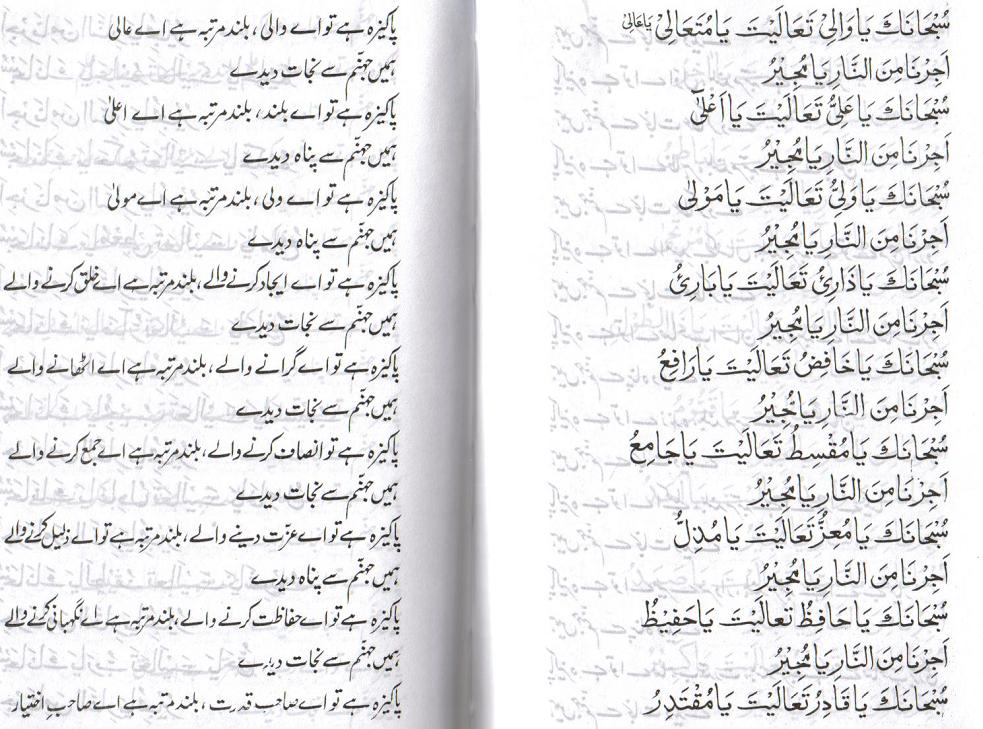 سُبْحَانَكَ يَا وَالِيْ تَعَالَيْتَ يَا مُتَعَالِيْ يَاعَالِىْ
اَجِرْنَا مِنَ النَّارِ يَا مُجِيْرُ
سُبْحَانَكَ يَا عَلِيُّ تَعَالَيْتَ يَا اَعْلٰى
اَجِرْنَا مِنَ النَّارِ يَا مُجِيْرُ
سُبْحَانَكَ يَا وَلِيُّ تَعَالَيْتَ يَا مَوْلٰى
اَجِرْنَا مِنَ النَّارِ يَا مُجِيْرُ
سُبْحَانَكَ يَا ذَارِئُ تَعَالَيْتَ يَا بَارِئُ
اَجِرْنَا مِنَ النَّارِ يَا مُجِيْرُ
سُبْحَانَكَ يَا خَافِضُ تَعَالَيْتَ يَا رَافِعُ
اَجِرْنَا مِنَ النَّارِ يَا مُجِيْرُ
سُبْحَانَكَ يَا مُقْسِطُ تَعَالَيْتَ يَا جَامِعُ
اَجِرْنَا مِنَ النَّارِ يَا مُجِيْرُ
سُبْحَانَكَ يَا مُعِزُّ تَعَالَيْتَ يَا مُذِلُّ
اَجِرْنَا مِنَ النَّارِ يَا مُجِيْرُ
سُبْحَانَكَ يَا حَافِظُ تَعَالَيْتَ يَا حَفِيْظُ
اَجِرْنَا مِنَ النَّارِ يَا مُجِيْرُ
سُبْحَانَكَ يَا قَادِرُ تَعَالَيْتَ يَا مُقْتَدِرُ
پاکیزہ ہے تو اے والی، بلند مرتبہ ہے اے عالی
ہمیں جہنّم سے نجات دیدے
پاکیزہ ہے تو اے بلند، بلند مرتبہ ہے اے اعلیٰ
ہمیں جہنّم سے پناہ دیدے
پاکیزہ ہے تو اے ولی، بلند مرتبہ ہے اے مولیٰ
ہمیں جہنّم سے پناہ دیدے
پاکیزہ ہے تو اے ایجاد کرنے والے، بلند مرتبہ ہے اے خلق کرنے والے
ہمیں جہنّم سے نجات دیدے
پاکیزہ ہے تو اے گرانے والے، بلند مرتبہ ہے اے اٹھانے والے
ہمیں جہنّم سے نجات دیدے
پاکیزہ ہے تو انصاف کرنے والے، بلند مرتبہ ہے اے جمع کرنے والے
ہمیں جہنّم سے نجات دیدے
پاکیزہ ہے تو اے عزّت دینے والے، بلند مرتبہ ہے تو اے ذلیل کرنے والے
ہمیں جہنّم سے پناہ دیدے
پاکیزہ ہے تو اے حفاظت کرنے والے، بلند مرتبہ ہے اے نگہبانی کرنے والے
ہمیں جہنّم سے نجات دیدے
پاکیزہ ہے تو اے صاحب قدرت، بلند مرتبہ ہے اے صاحب اختیار